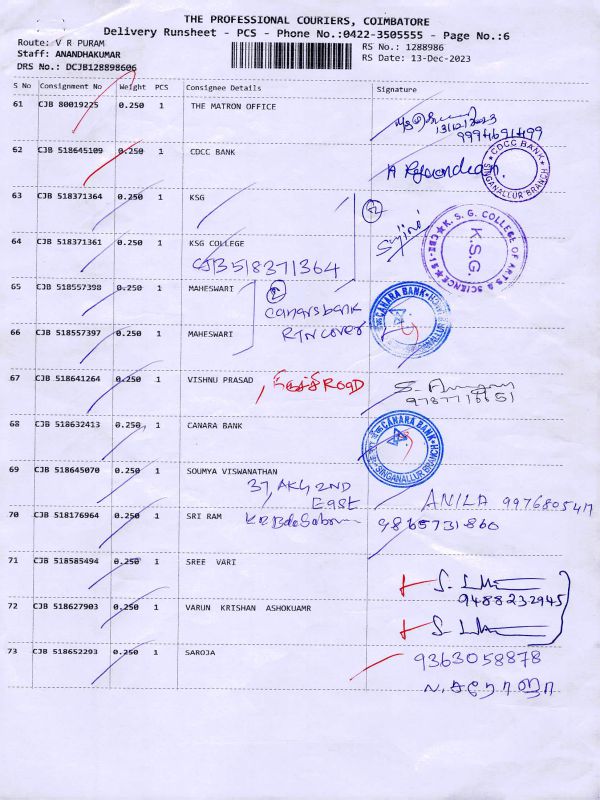 THE PROFESSIONAL COURIERS, COIMBATORE
Delivery Runsheet - PCS - Phone No.:0422-3505555 - Page No.:6
Route: V R PURAM
Staff: ANANDHAKUMAR
DRS No.: DCJB128898606
RS No.: 1288986
RS Date: 13-Dec-2023
S No Consignment No Weight PCS Consignee Details Signature
61 CJB 80019225 0.250 1 THE MATRON OFFICE
13/12/2023
9994691499
62 CJB 518645109 0.250 1 CDCC BANK
CDCC BANK
SINGANALLUR BRANCH
63 CJB 518371364 0.250 1 KSG
64 CJB 518371361 0.250 1 KSG COLLEGE
CJB518371364
K. S. G. COLLEGE OF ARTS & SCIENCE CBE-15
K.S.G.
65 CJB 518557398 0.250 1 MAHESWARI
2
Canara bank
RTN COVER
CANARA BANK
SINGANALLUR BRANCH
66 CJB 518557397 0.250 1 MAHESWARI
67 CJB 518641264 0.250 1 VISHNU PRASAD
ROAD
68 CJB 518632413 0.250 1 CANARA BANK
CANARA BANK
SINGANALLUR BRANCH
69 CJB 518645070 0.250 1 SOUMYA VISWANATHAN
37, AKG 2ND
East
ANILA
70 CJB 518176964 0.250 1 SRI RAM
9865731860
71 CJB 518585494 0.250 1 SREE VARI
9488232945
72 CJB 518627903 0.250 1 VARUN KRISHAN ASHOKUAMR
73 CJB 518652293 0.250 1 SAROJA
9363058878
N. சரோஜா